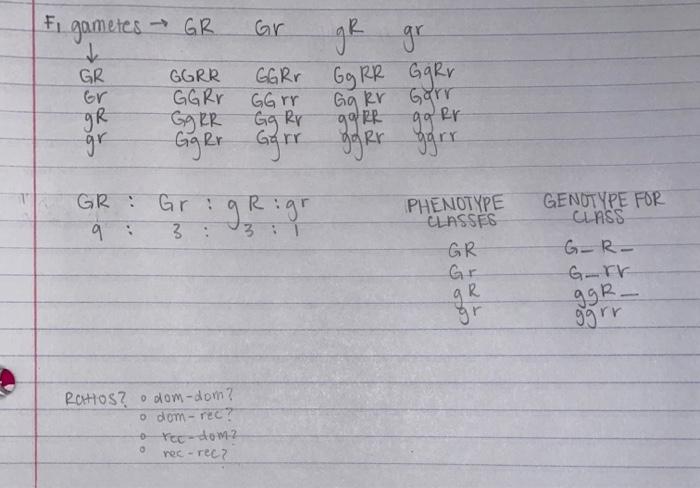 F1 gametes → GR Gr gR gr
↓
GR GGRR GGRr GgRR GgRr
Gr GGRr GGrr GgRr Ggrr
gR GgRR GgRr ggRR ggRr
gr GgRr Ggrr ggRr ggrr
GR : Gr : gR : gr
9 : 3 : 3 : 1
PHENOTYPE CLASSES GENOTYPE FOR CLASS
GR G_R_
Gr G_rr
gR ggR_
gr ggrr
Ratios? o dom-dom?
o dom-rec?
o rec-dom?
o rec-rec?